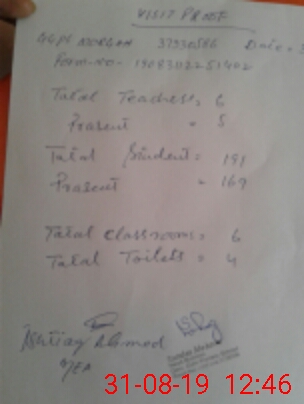 VISIT PROOF
GGPS NORGAH 37330586 Date =
Form-NO- 1908302251402
Total Teachers = 6
Present = 5
Total Student = 191
Present = 169
Total classrooms = 6
Total Toilets = 4
Ishtiaq Ahmed
31-08-19 12:46